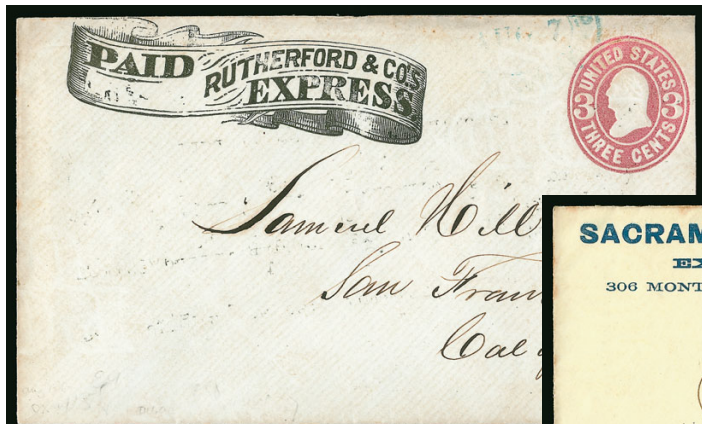 PAID RUTHERFORD & CO'S
EXPRESS
UNITED STATES
3 3
THREE CENTS
Samuel Hill
San Fran
Cal
SACRAM
EX
306 MONT